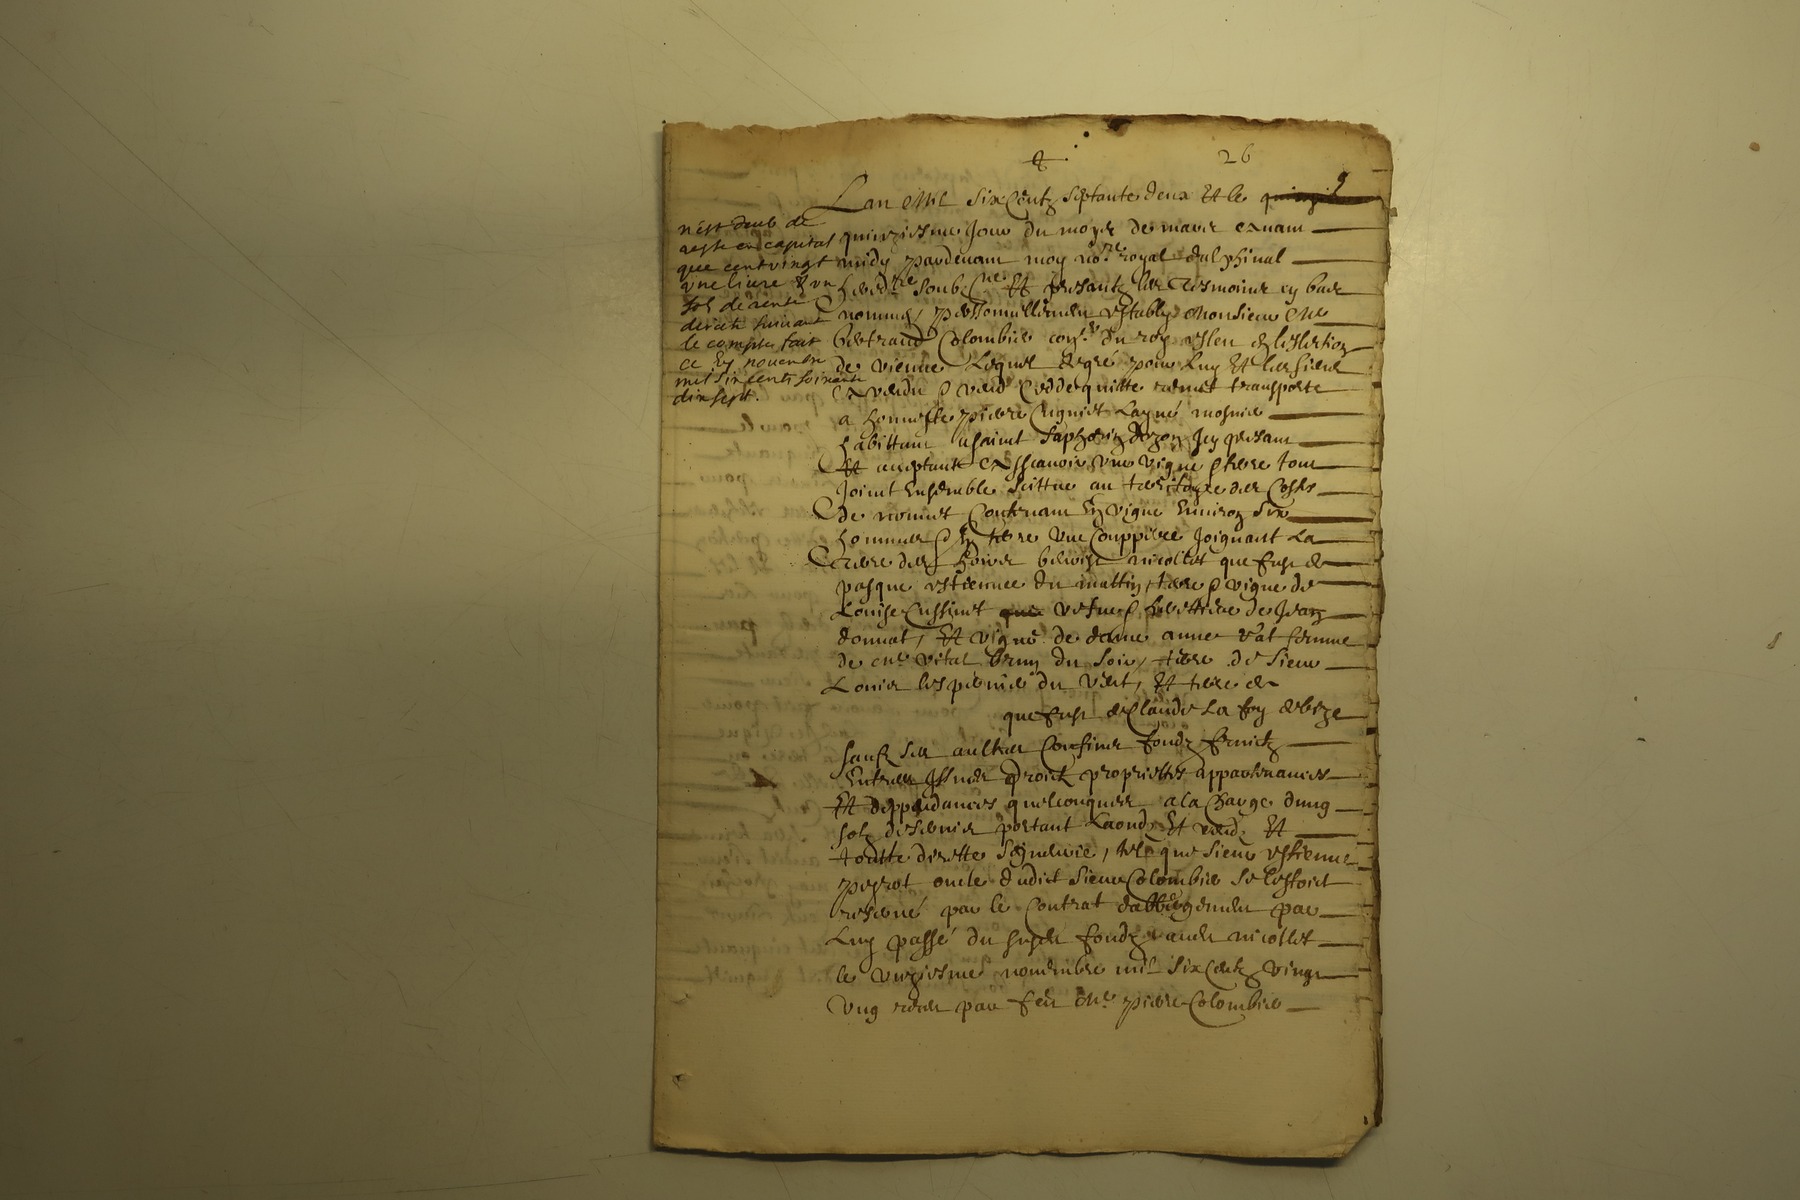 26
9
Lan Mil Six Centz Septante deux Et le
quinziesme Jour du moys de mars avant
midy pardevant moy no.re royal dalphinal
hered.re soub.ne Et presantz les tesmoins cy bas
nommes, personnellement estably Monsieur Me
Bertrand Colombier con.er du roy esleu en leslection
de vienne Lequel de gré pour luy Et les siens
a vendu vend cedde quitte remet transporte
a honneste pierre Layné
habittant a saint Saphorin dozon Icy presant
Et acceptant assavoir une vigne terre tout
Joint Ensemble scittue au territoyre des Costes
de contenant En vigne Environ six
hommes En terre une couppiere Joignant La
terre des hoirs benoist nicollet que fust de
pasque estienne du mattin, terre vigne de
Louise vefue herettiere de Jean
donnat, Et vigne de dame anne femme
de Me vital brun du soir, terre de sieur
Louis du vent, Et terre de
que fust de Claude La foy de bize
sauf ses aultres Confins fondz fruictz
Entrees Issues droictz proprietes appartenances
Et deppendances quelconques a la charge dung
solz de servis portant Laondz Et vendz Et
toutte directte seigneurie, tel que sieur estienne
peyrot oncle dudict sieur Colombier se lestoict
reservé par le contrat dalbergement par
Luy passé du susdit fondz audit nicollet
le unziesme novembre mil six centz vingt
ung receu par feu Me pierre Colombier
n'est deub de
reste en capital
que cent vingt
une livre & un
sol de rente
directe suivant
le compte fait
ce novembre
mil six cents soixante
dix sept.